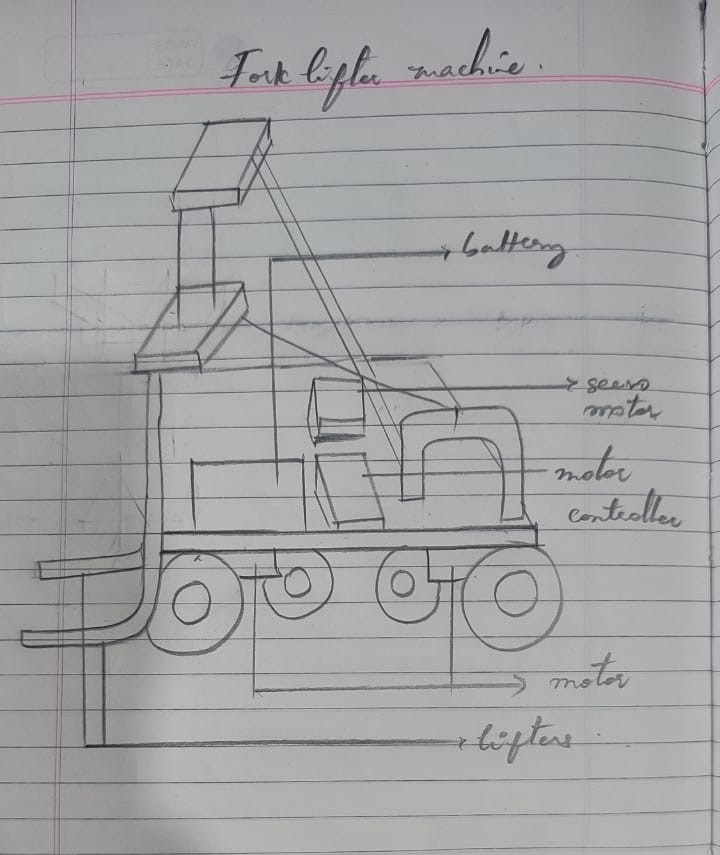 Fork lifter machine.
battery
servo
motor
motor
controller
motor
lifters